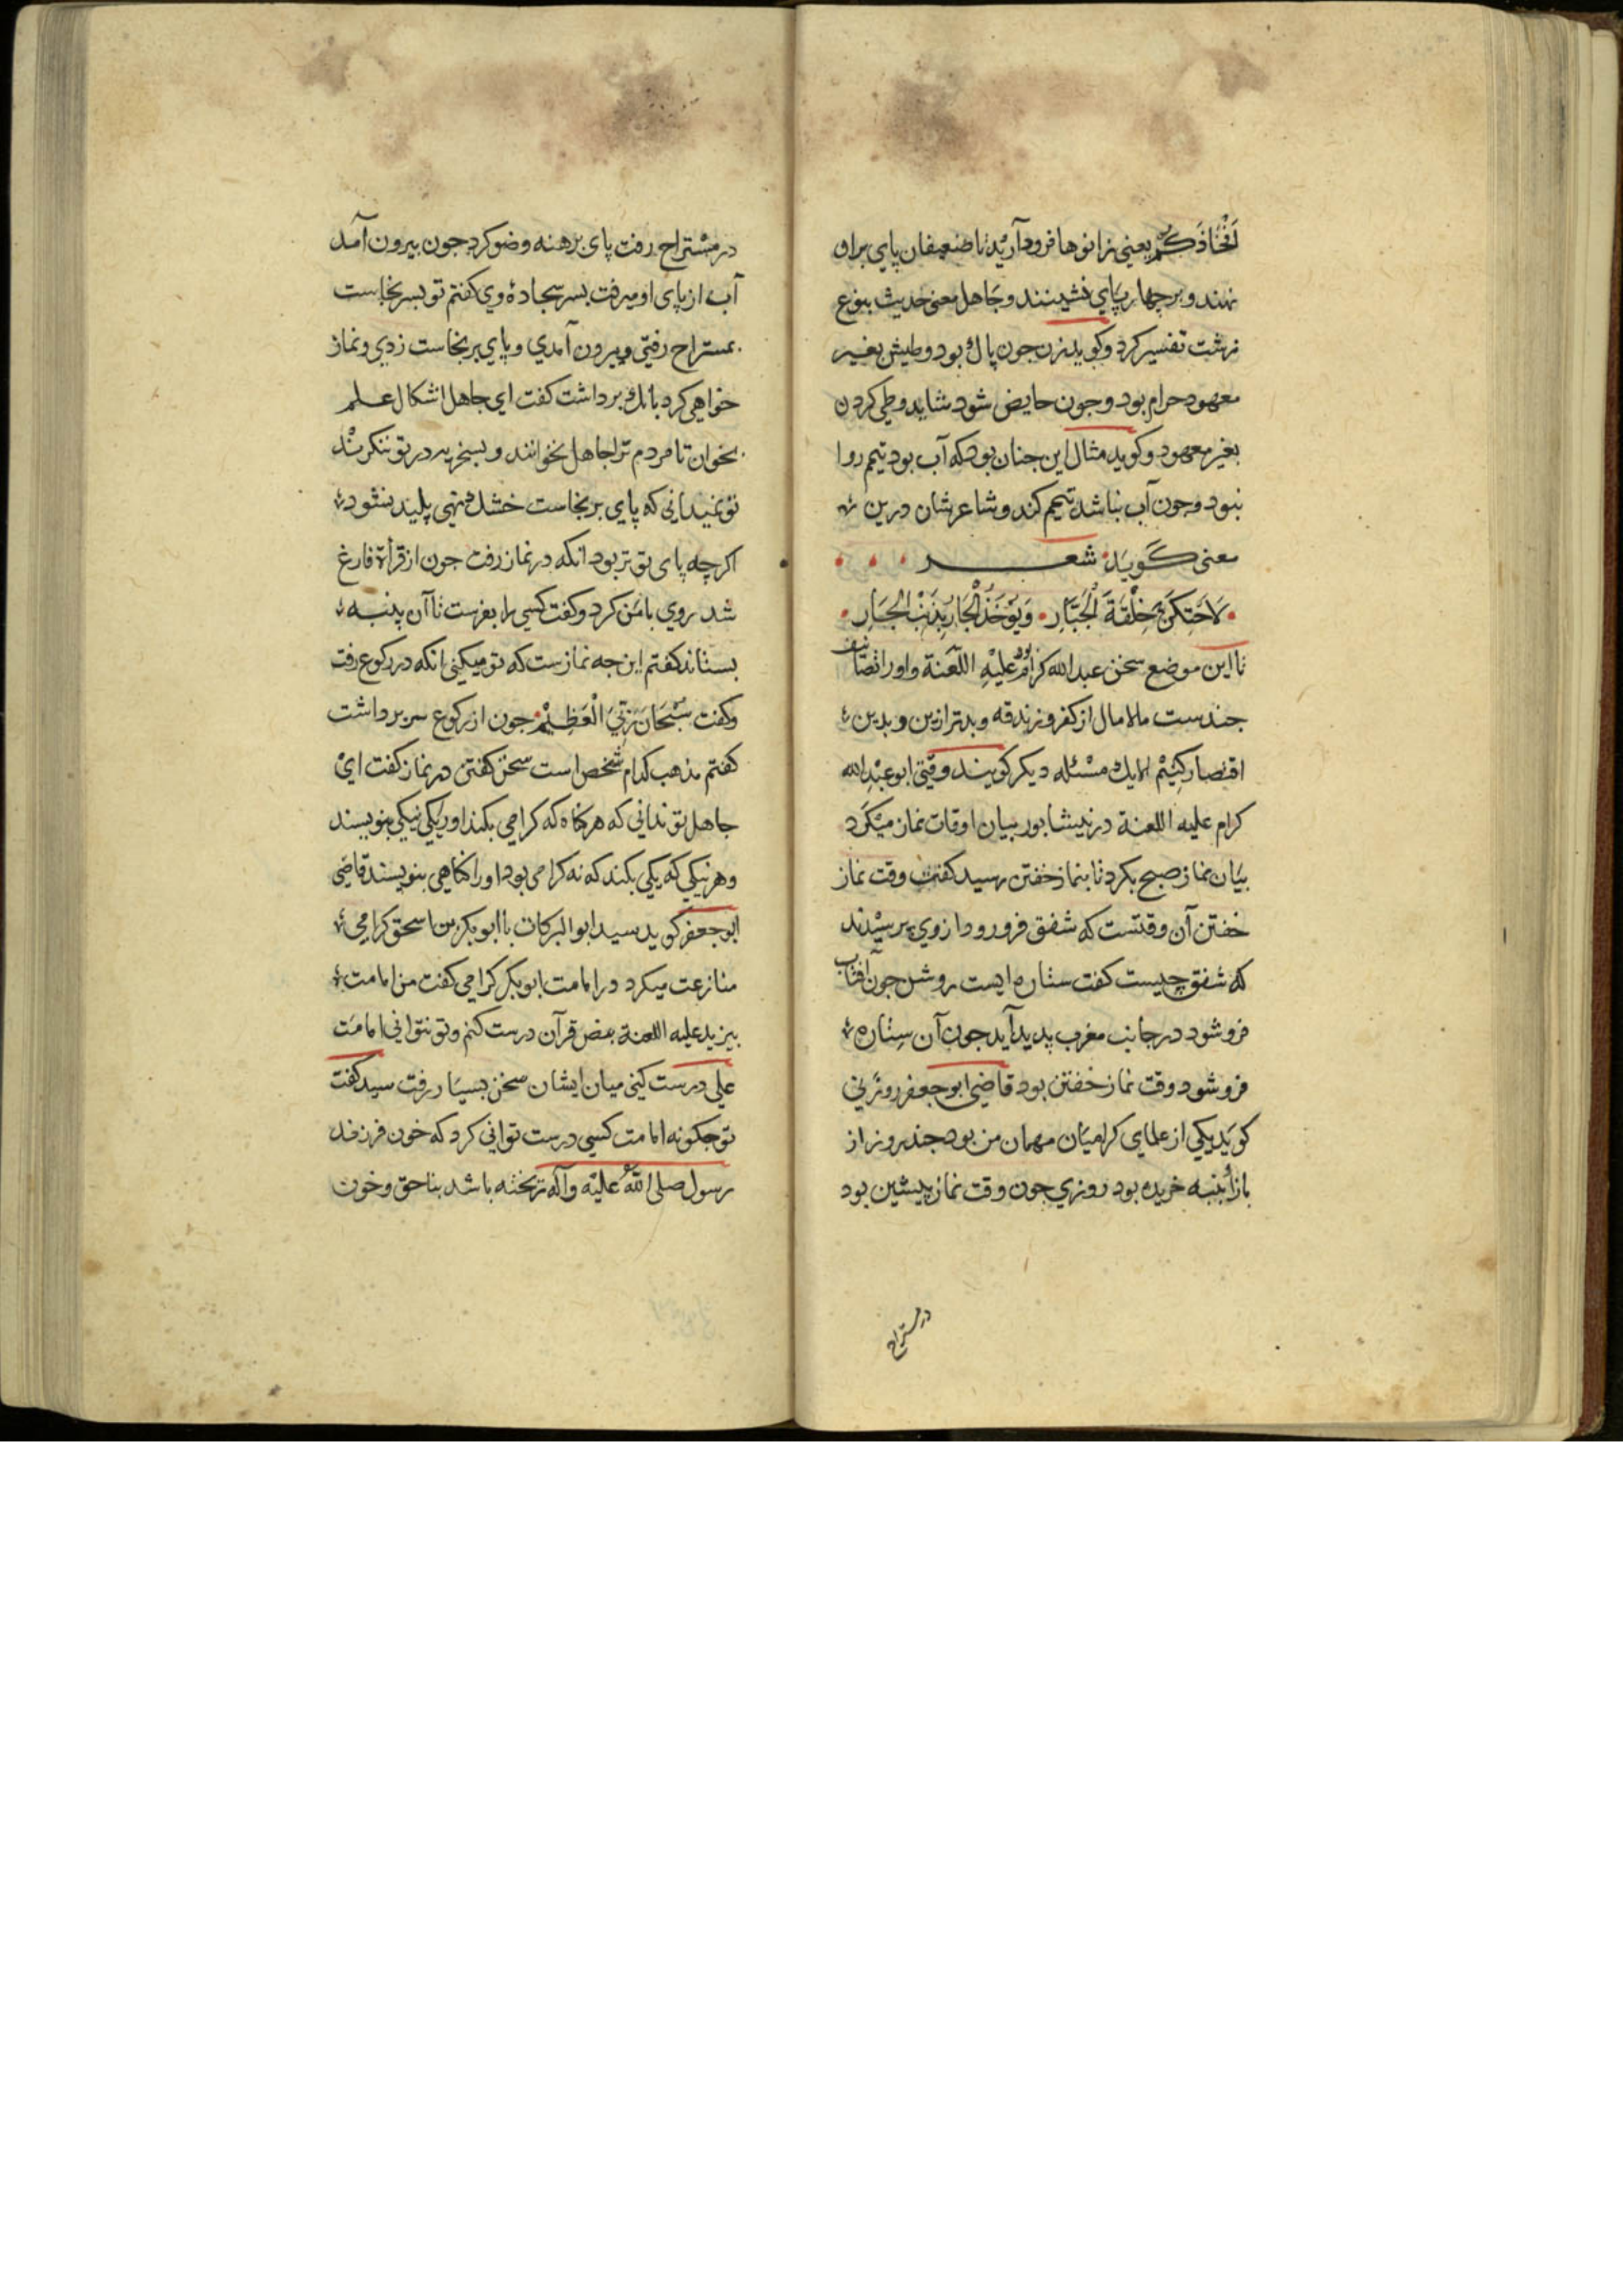 اَفْخَاذَكُمْ يعنى زانوها فرود آريد تا ضعيفان پاى بران
نهند و بر چهار پاى نشينند و جاهل معنى حديث بنوع
زشت تفسير كرد و كويد زن جون پاك بود وطيش بغير
معهود حرام بود و جون حايض شود شايد وطى كردن
بغير معهود و كويد مثال اين جنان بود كه آب بود تيمم روا
نبود و جون آب نباشد تيمم كند و شاعرشان درين
معنى كويد شعر
وَيُؤْخَذُ الْجَارُ بِذَنْبِ الْجَارِ
تا اين موضع سخن عبد الله كرام بود عليه اللعنة و او را تصانيف
جندست مالامال از كفر و زندقه و بدتر ازين و بدين
اقتصار كنيم الا يك مسئله ديكر كويند وقتى ابو عبد الله
كرام عليه اللعنة در نيشابور بيان اوقات نماز ميكرد
بيان نماز صبح بكرد تا بنماز خفتن رسيد كفت وقت نماز
خفتن آن وقتست كه شفق فرو رود از وى پرسيدند
كه شفق چيست كفت ستاره ايست روشن جون آفتاب
فرو شود در جانب مغرب پديد آيد جون آن ستاره
فرو شود وقت نماز خفتن بود قاضى ابو جعفر زوزنى
كويد يكى از علماى كراميان مهمان من بود جند روز از
بازار پنبه خريده بود روزى جون وقت نماز پيشين بود
در مستراح
در مستراح رفت پاى برهنه وضو كرد جون بيرون آمد
آب از پاى او ميرفت بسر سجاده وى كفتم تو بسر نجاست
بمستراح رفتى و بيرون آمدى و پاى بر نجاست زدى و نماز
خواهى كرد بانك برداشت كفت اى جاهل اشكال علم
بخوان تا مردم ترا جاهل نخوانند و بسخريه در تو ننكرند
تو نميدانى كه پاى بر نجاست خشك نهى پليد نشود
اكرچه پاى تو تر بود انكه در نماز رفت جون از قرأة فارغ
شد روى با من كرد و كفت كسى را بفرست تا آن پنبه
بستاند كفتم اين جه نمازست كه تو ميكنى انكه در ركوع رفت
و كفت سُبْحَانَ رَبِّيَ الْعَظِيْمِ جون از ركوع سر برداشت
كفتم مذهب كدام شخص است سخن كفتن در نماز كفت اى
جاهل تو ندانى كه هر كناه كه كرامى بكند او را يكى نيكى بنويسند
و هر نيكى كه يكى بكند كه نه كرامى بود او را كناهى بنويسند قاضى
ابو جعفر كويد سيد ابو البركات با ابو بكر بن اسحق كرامى
منازعت ميكرد در امامت ابو بكر كرامى كفت من امامت
يزيد عليه اللعنة بنص قرآن درست كنم و تو نتوانى امامت
على درست كنى ميان ايشان سخن بسيار رفت سيد كفت
تو جكونه امامت كسى درست توانى كرد كه خون فرزند
رسول صلى الله عليه و آله ريخته باشد بناحق و خون